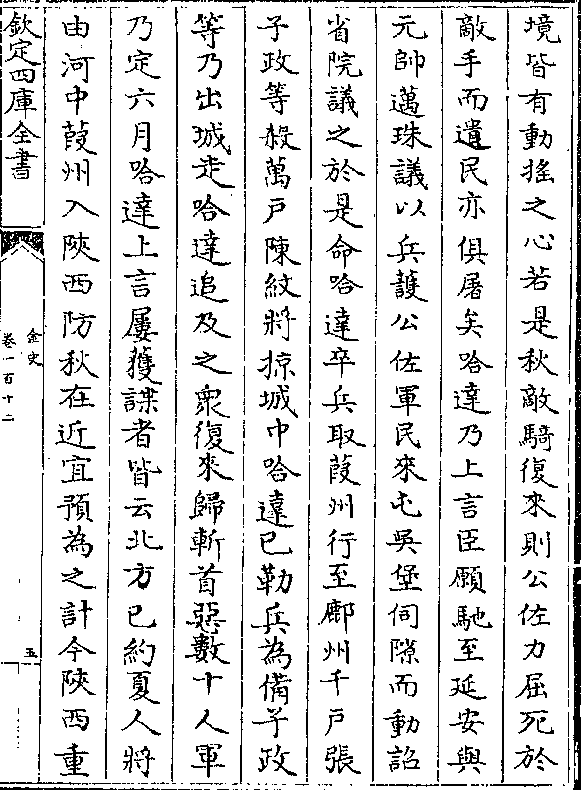 境皆有動揺之心若是秋敵騎復來則公佐力屈死於
敵手而遺民亦俱屠矣哈達乃上言臣願馳至延安與
元帥邁珠議以兵護公佐軍民來屯吳堡伺隙而動詔
省院議之於是命哈達率兵取葭州行至鄜州千户張
子政等殺萬户陳紋將掠城中哈達已勒兵為備子政
等乃出城走哈達追及之衆復來歸斬首惡數十人軍
乃定六月哈達上言屢獲諜者皆云北方已約夏人將
由河中葭州入陜西防秋在近宜預為之計今陜西重
欽定四庫全書
金史
卷一百十二
五